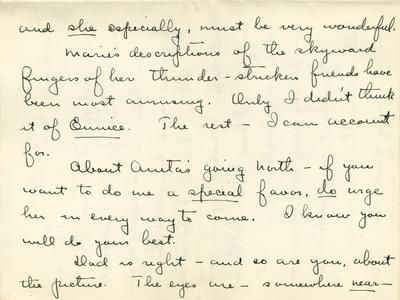 and she especially, must be very wonderful.
Marie's descriptions of the skyward
fingers of her thunder-stricken friends have
been most amusing. Only I didn't think
it of Eunice. The rest - I can account
for.
About Anita's going north - if you
want to do me a special favor, do urge
her in every way to come. I know you
will do your best.
Dad is right - and so are you, about
the picture. The eyes are - somewhere near-